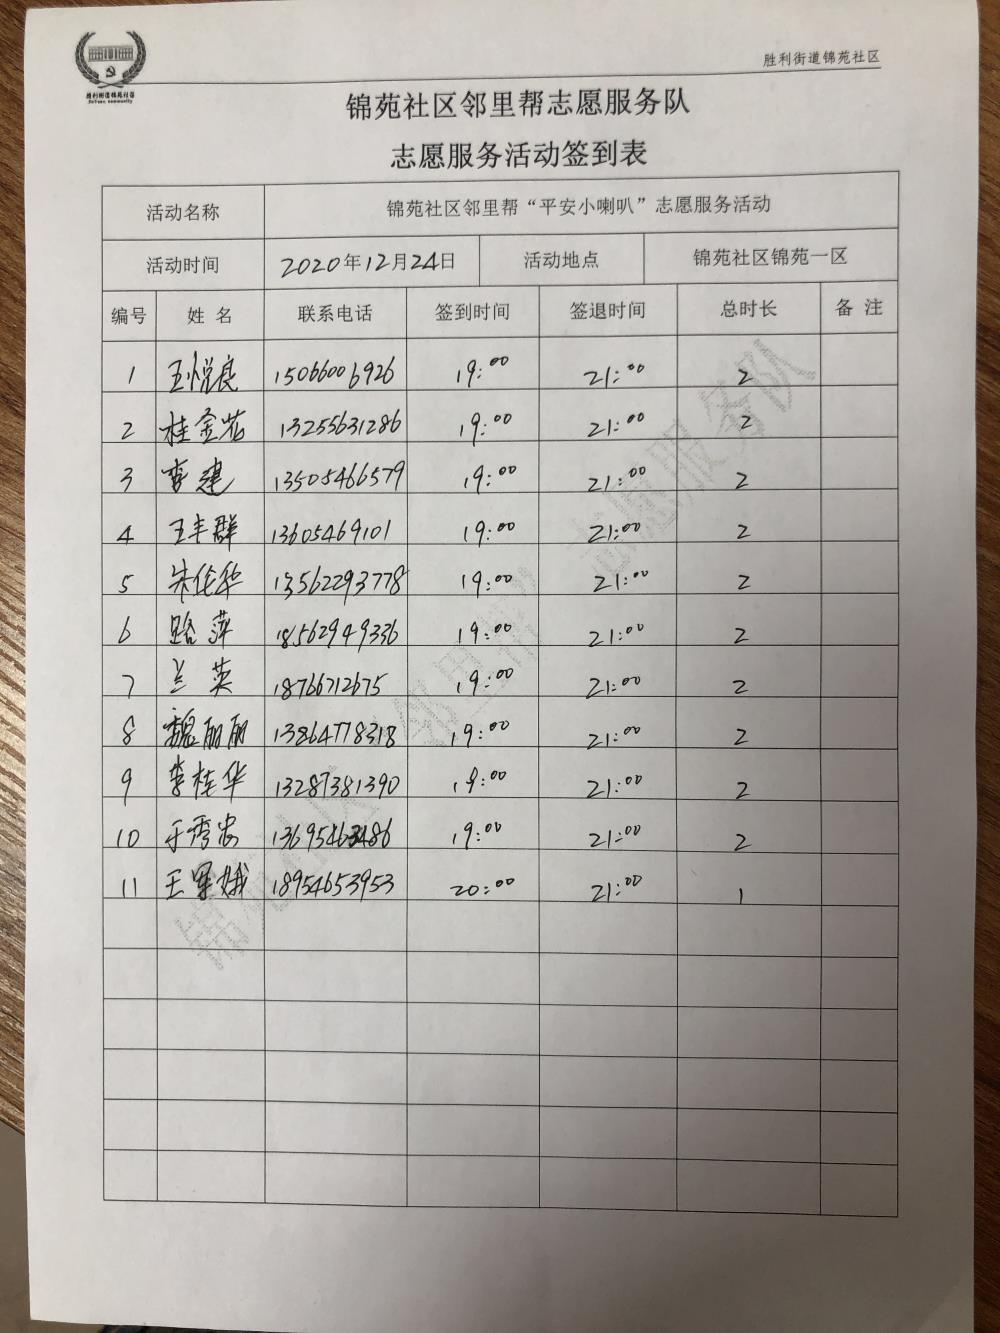 胜利街道锦苑社区
胜利街道锦苑社区
锦苑社区邻里帮志愿服务队
志愿服务活动签到表
活动名称 锦苑社区邻里帮“平安小喇叭”志愿服务活动
活动时间 2020年12月24日 活动地点 锦苑社区锦苑一区
编号 姓 名 联系电话 签到时间 签退时间 总时长 备 注
1 王悦良 15066006926 19:00 21:00 2
2 桂金花 13255631286 19:00 21:00 2
3 李建 13505466579 19:00 21:00 2
4 王丰群 13605469101 19:00 21:00 2
5 朱伦华 13562293778 19:00 21:00 2
6 路萍 18562949336 19:00 21:00 2
7 兰英 18766712675 19:00 21:00 2
8 魏丽丽 13864778318 19:00 21:00 2
9 李桂华 13287381390 19:00 21:00 2
10 于秀忠 13695463486 19:00 21:00 2
11 王军娥 18954653953 20:00 21:00 1
锦苑社区“邻里帮”志愿服务队